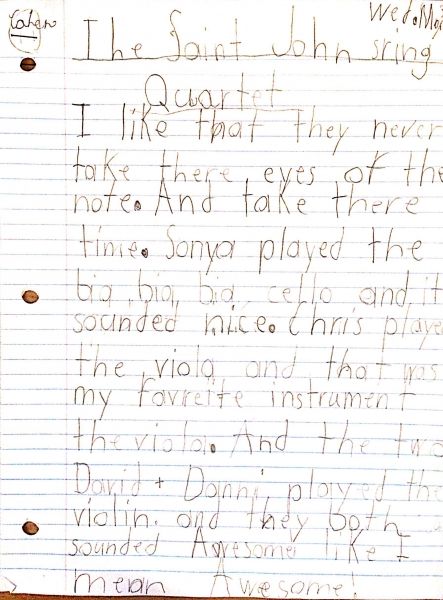 Wed. Ma
The Saint John sring
Quartet
I like that they never
take there eyes of the
note. And take there
time. Sonya played the
big, big, big cello and it
sounded nice. Chris playe
the viola and that was
my favreite instrument
the viola. And the two
David + Danni played the
violin. and they both
sounded Awesome like I
mean Awesome!